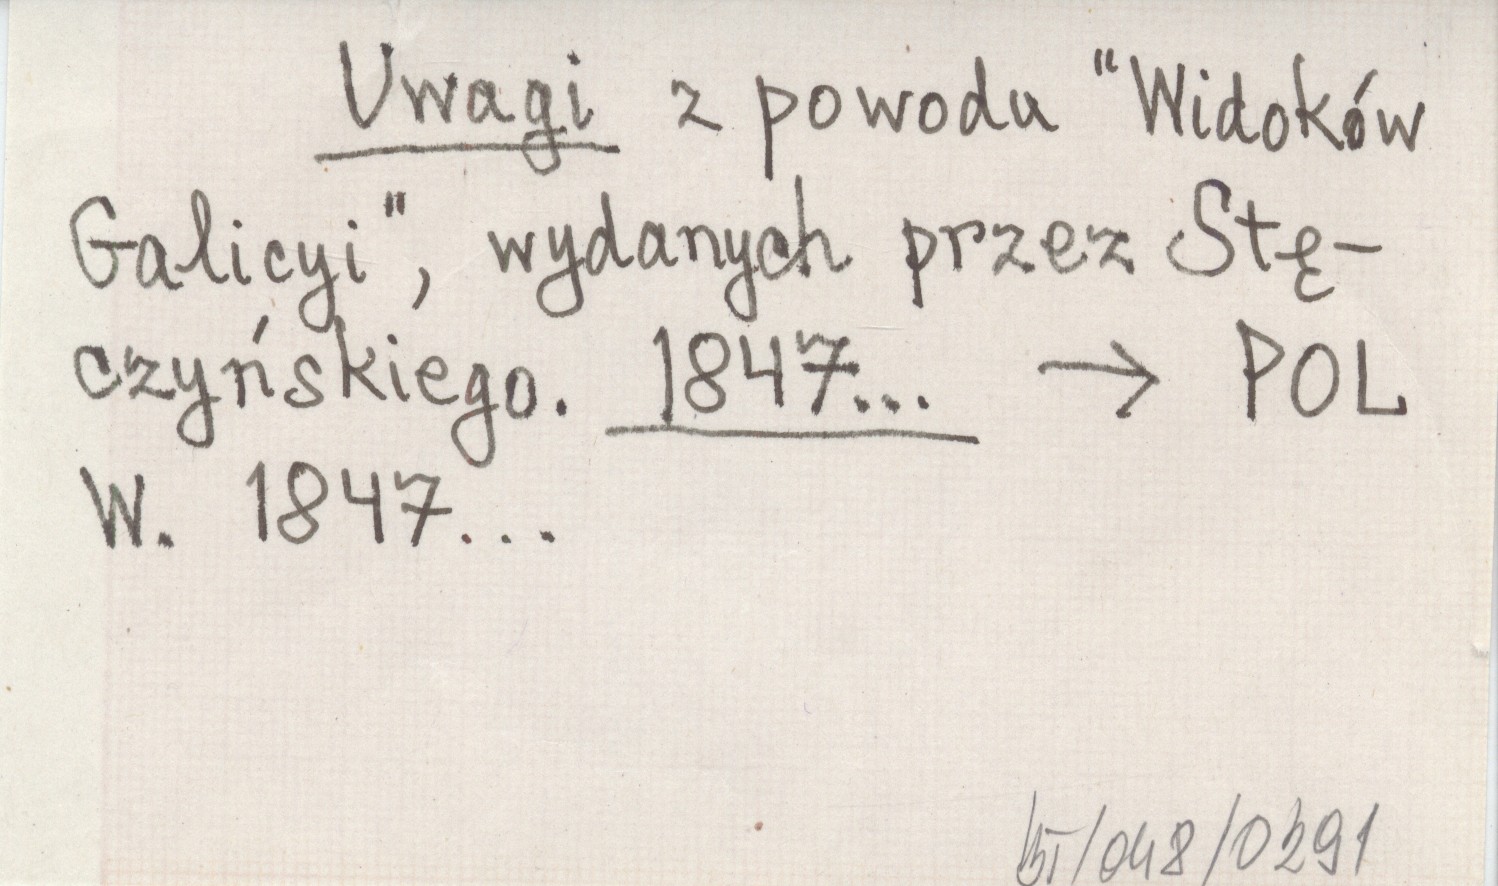 Uwagi z powodu "Widoków
Galicyi", wydanych przez Stę-
czyńskiego. 1847... → POL
W. 1847...
/048/0291